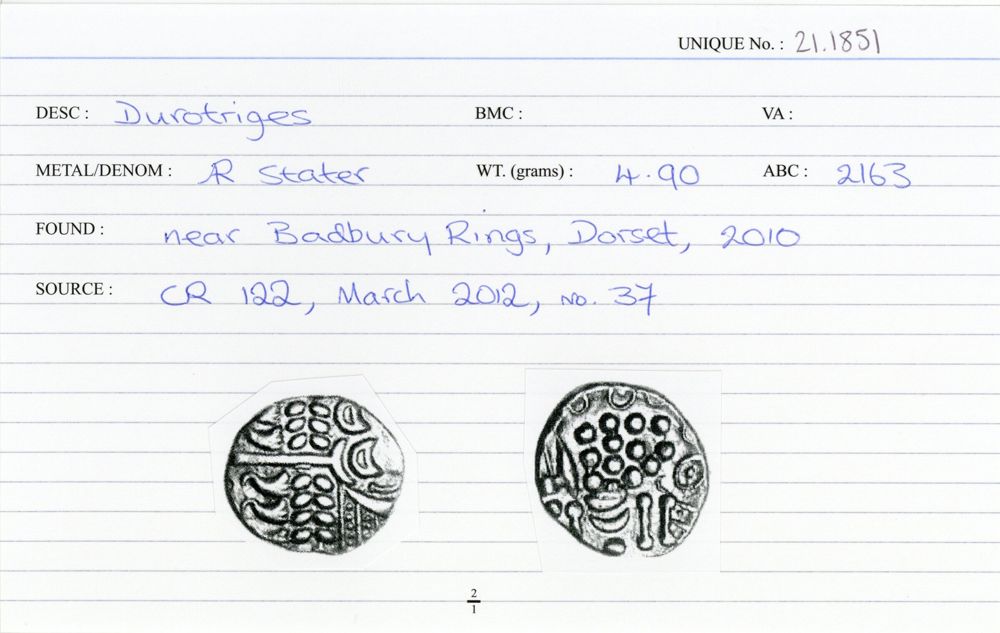 UNIQUE No. : 21.1851
DESC : Durotriges BMC : VA :
METAL/DENOM : AR Stater WT. (grams) : 4.90 ABC : 2163
FOUND : near Badbury Rings, Dorset, 2010
SOURCE : CR 122, March 2012, no. 37
2
1